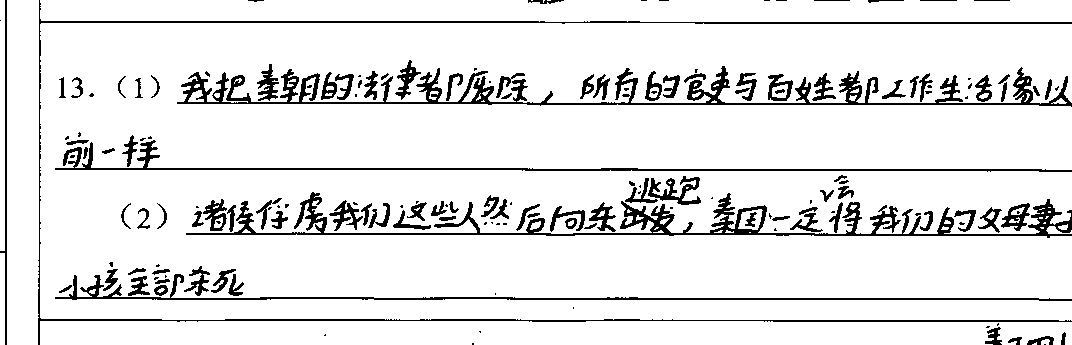 13.（1）我把秦朝的法律都废除，所有的官吏与百姓都工作生活像以
前一样
（2）诸侯俘虏我们这些人然后向东逃跑，秦国一定会将我们的父母妻子
小孩全部杀死